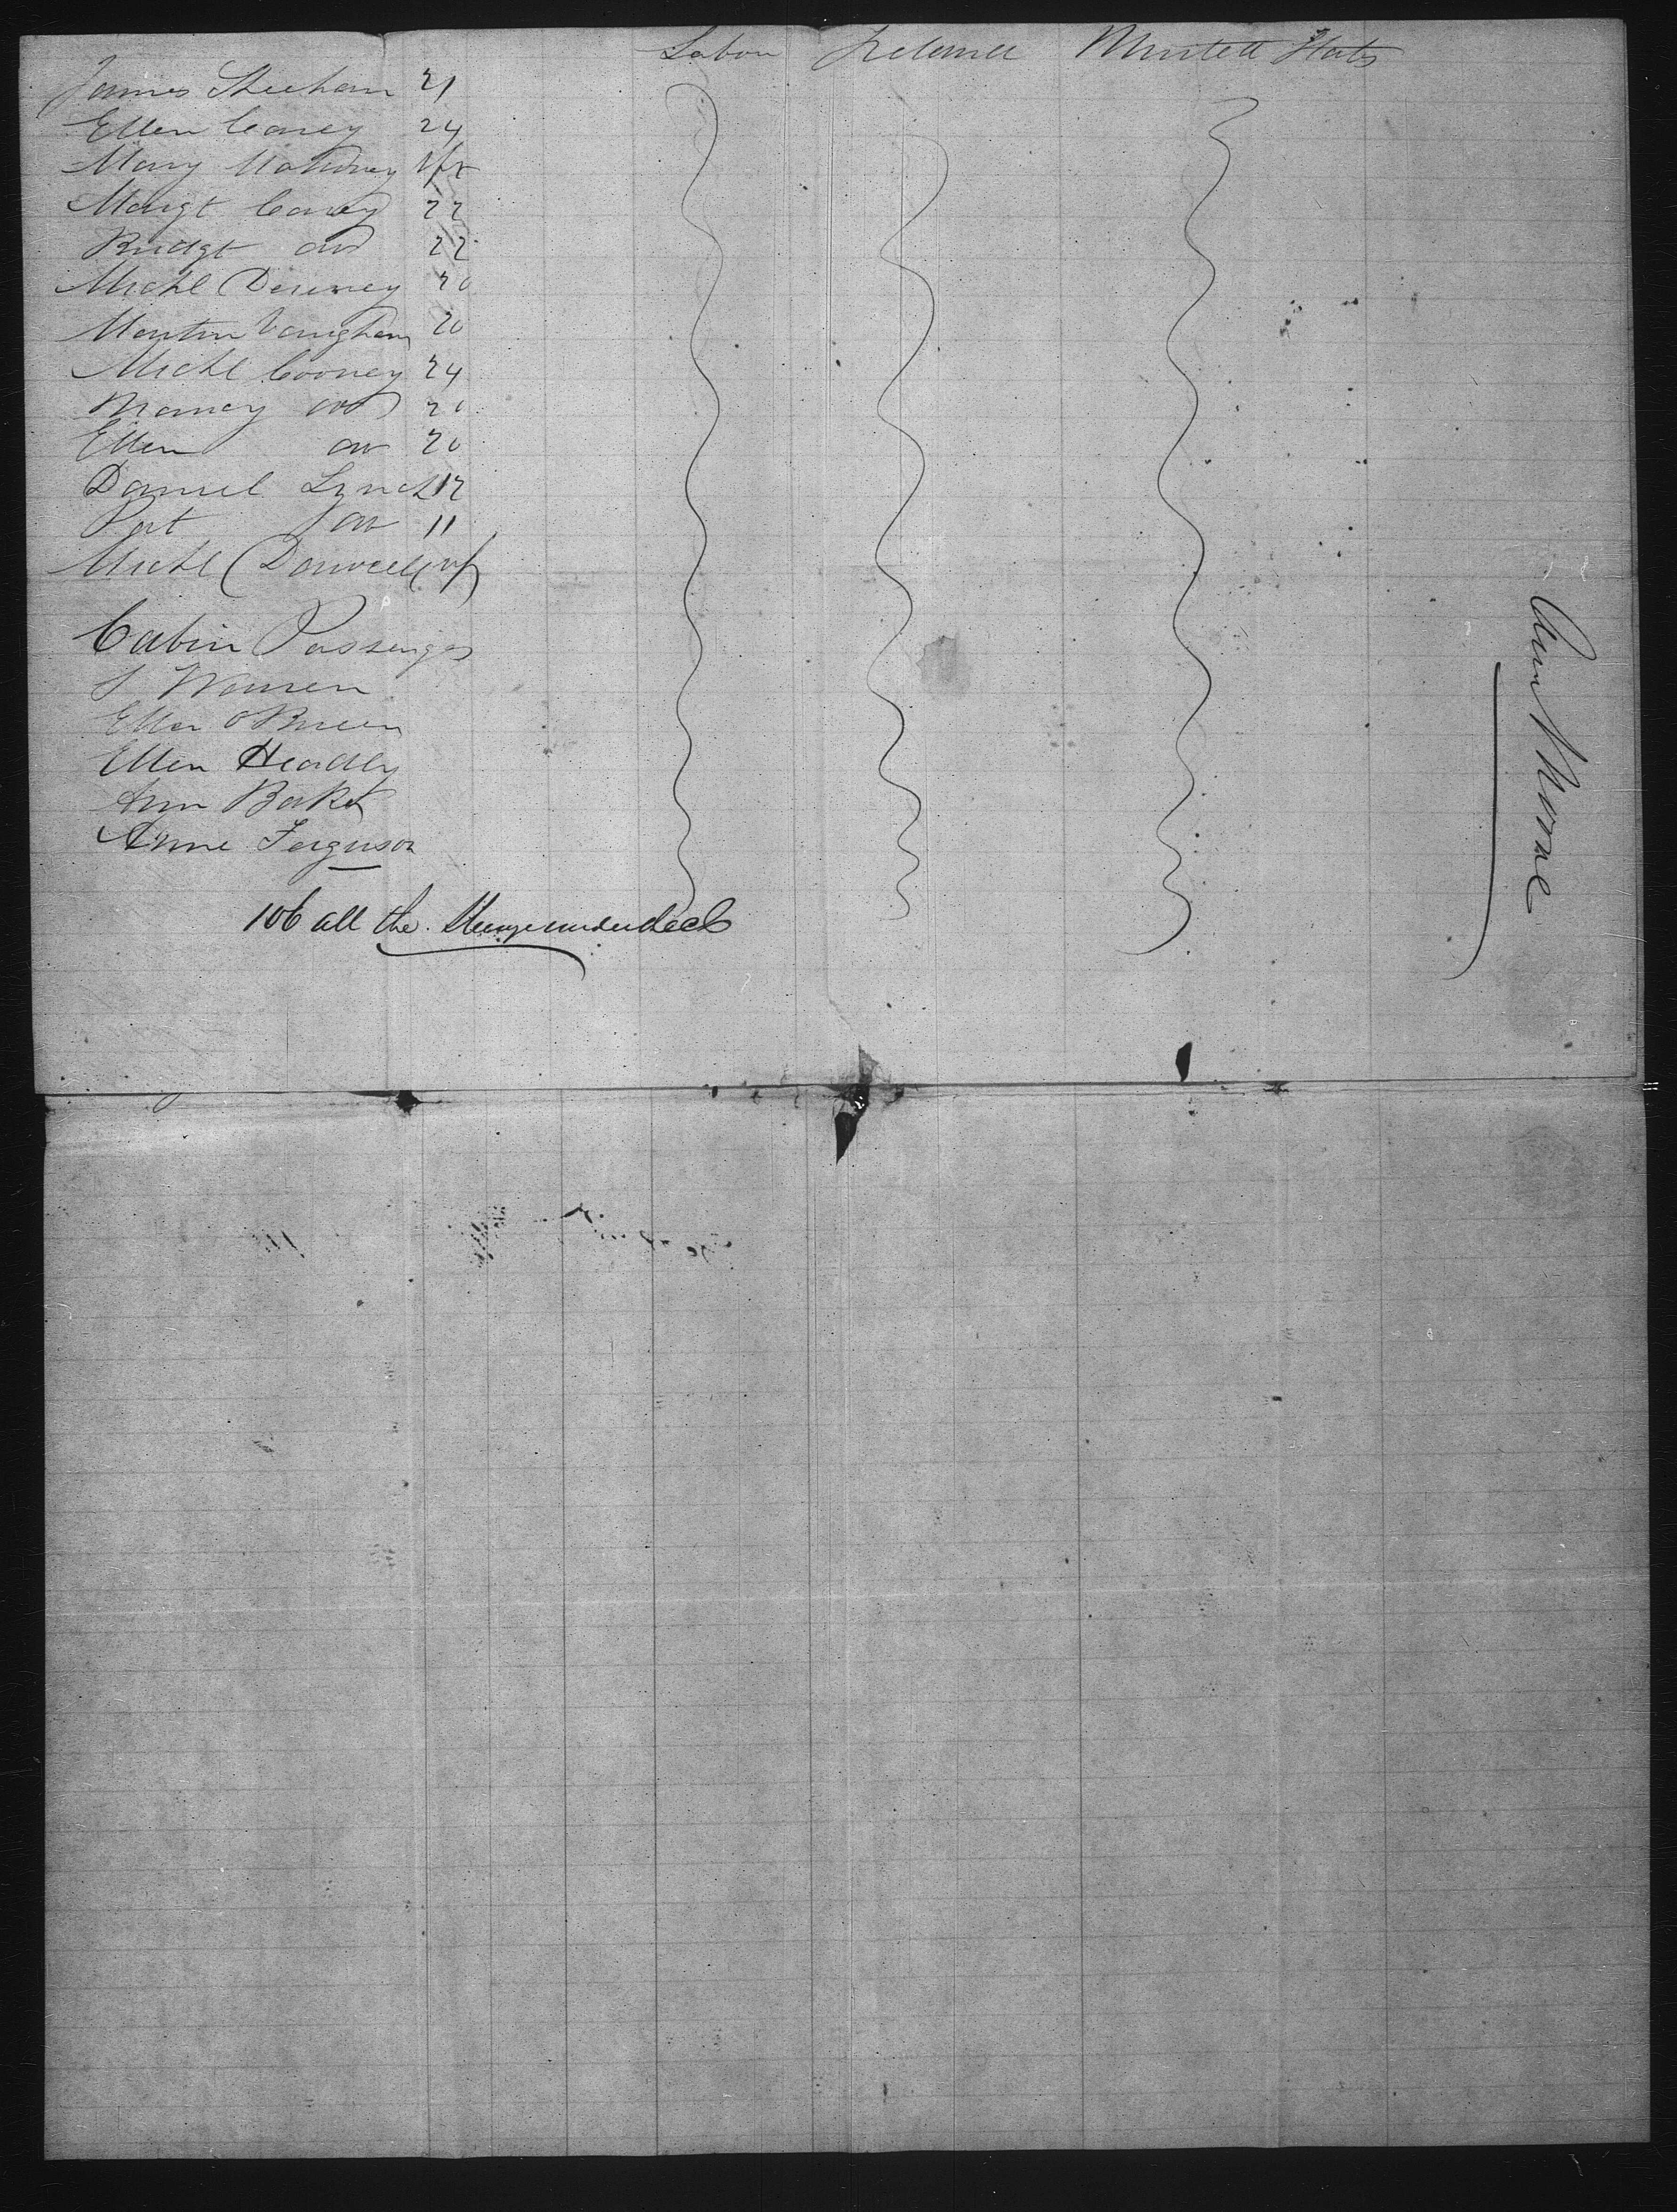 Labor Ireland United States
James Sheehan 21
Ellen Carey 24
Mary Mahoney
Margt Carey 22
Bridgt do 22
Michl Downey 20
Martin Vaughan 20
Michl Cooney 24
Nancy do 20
Ellen do 20
Daniel Lynch 12
Pat do 11
Michl
Cabin Passengers
Ellen O Brien
Ellen Headly
Ann
Anne Ferguson
106 all the Steerage under deck